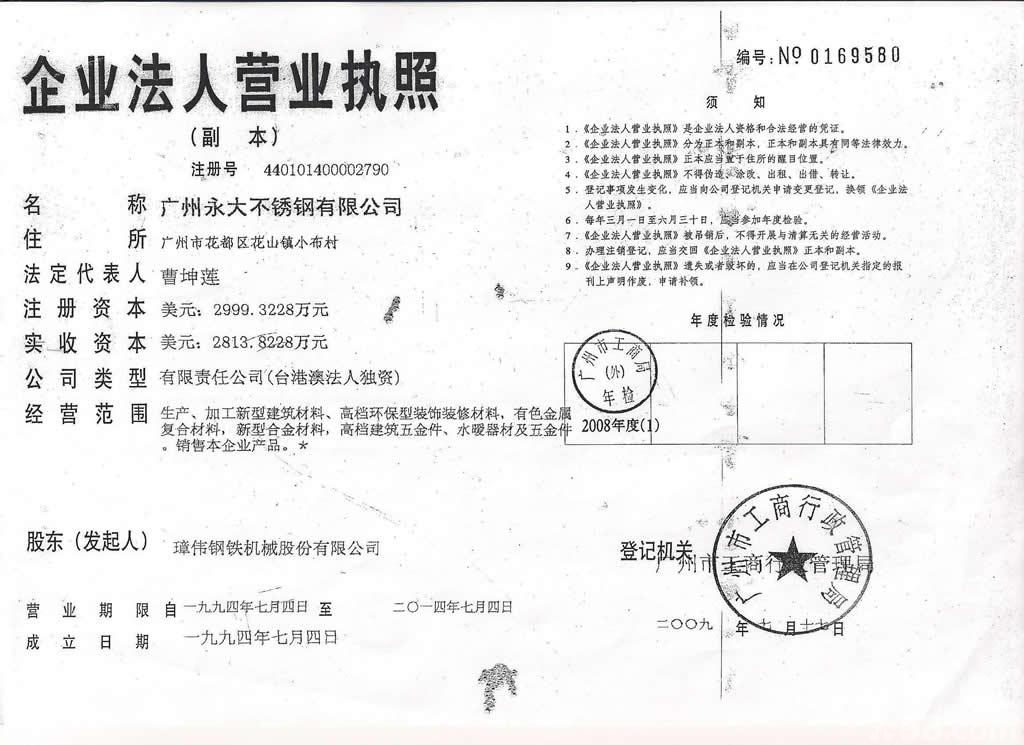 企业法人营业执照
（副 本）
注册号 440101400002790
名 称 广州永大不锈钢有限公司
住 所 广州市花都区花山镇小布村
法定代表人 曹坤莲
注册资本 美元：2999.3228万元
实收资本 美元：2813.8228万元
公司类型 有限责任公司(台港澳法人独资)
经营范围 生产、加工新型建筑材料、高档环保型装饰装修材料，有色金属
复合材料，新型合金材料，高档建筑五金件、水暖器材及五金件
。销售本企业产品。*
股东（发起人） 璋伟钢铁机械股份有限公司
营业期限自 一九九四年七月四日 至 二〇一四年七月四日
成立日期 一九九四年七月四日
编号：Nº 0169580
须 知
1．《企业法人营业执照》是企业法人资格和合法经营的凭证。
2．《企业法人营业执照》分为正本和副本，正本和副本具有同等法律效力。
3．《企业法人营业执照》正本应当置于住所的醒目位置。
4．《企业法人营业执照》不得伪造、涂改、出租、出借、转让。
5．登记事项发生变化，应当向公司登记机关申请变更登记，换领《企业法
人营业执照》。
6．每年三月一日至六月三十日，应当参加年度检验。
7．《企业法人营业执照》被吊销后，不得开展与清算无关的经营活动。
8．办理注销登记，应当交回《企业法人营业执照》正本和副本。
9．《企业法人营业执照》遗失或者毁坏的，应当在公司登记机关指定的报
刊上声明作废，申请补领。
年度检验情况
广州市工商局
(外)
年检
2008年度(1)
登记机关
广州市工商行政管理局
广州市工商行政管理局
二〇〇九 年 七 月 十七 日